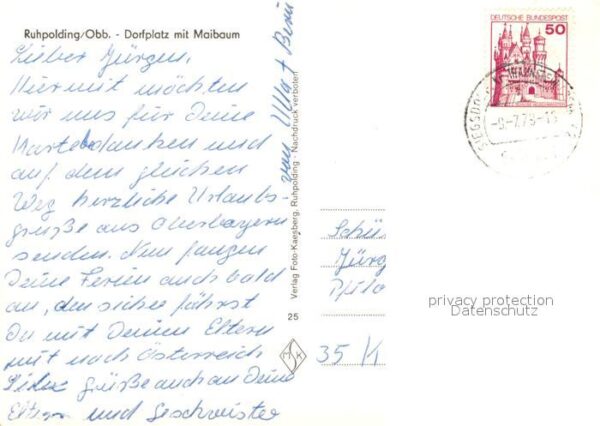 Ruhpolding/Obb. - Dorfplatz mit Maibaum
Lieber Jürgen,
Hiermit möchten
wir uns für Deine
Karte bedanken und
auf dem gleichen
Weg herzliche Urlaubs-
grüße aus Oberbayern
senden. Nun fangen
Deine Ferien auch bald
an, denn sicher fährst
Du mit Deinen Eltern
mit nach Österreich
Liebe Grüße auch an Deine
Eltern und Geschwister
von Ulla + Bernd
Verlag Foto-Kaesberg, Ruhpolding - Nachdruck verboten
25
MK
DEUTSCHE BUNDESPOST
50
SIEGSDO
-9.-7.79-15
Schü
Jürg
35 K
privacy protection
Datenschutz